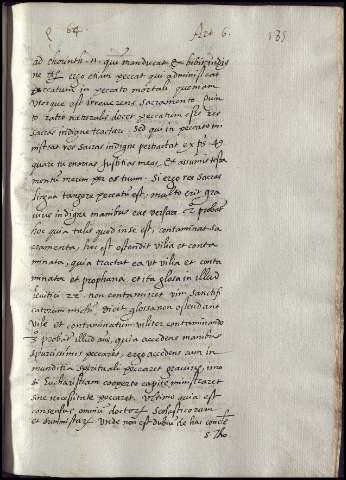 q 64. Art 6. 135
ad chorinth. 11. qui manducat & bibit indig
ne &c. ergo etiam peccat qui administrat
in peccato mortali quoniam
uterque est irreverens sacramento. Quin
to ratio naturalis docet peccatum esse res
sacras indigne tractari. Sed qui in peccato mi
nistrat res sacras indigne pertractat ex ps. 49
quare tu enarras justitias meas, et assumis testa
mentum meum per os tuum. Si ergo res sacras
lingua tangere peccatum est, multo erit gra
uius indignis manibus eas versare et probat
hoc quia talis quod in se est, contaminat sa
cramenta, hoc est ostendit vilia et conta
minata, quia tractat ea ut vilia et conta
minata et prophana et ita glosa in illud
leuitici 22 non contaminet vir sanctifi
catorum dicit glossa non ostendant
vile et contaminatum viliter contaminando
3 probat illud quia accedens manibus
spurcissimis peccaret, ergo accedens cum in
munditia spirituali peccaret grauius, imo
si Eucharistiam cooperto capite ministraret
sine necessitate peccaret. Ultimo quia est
consensus omnium doctorum scolasticorum
et Unde non est dubium de hac concl.
s. Tho